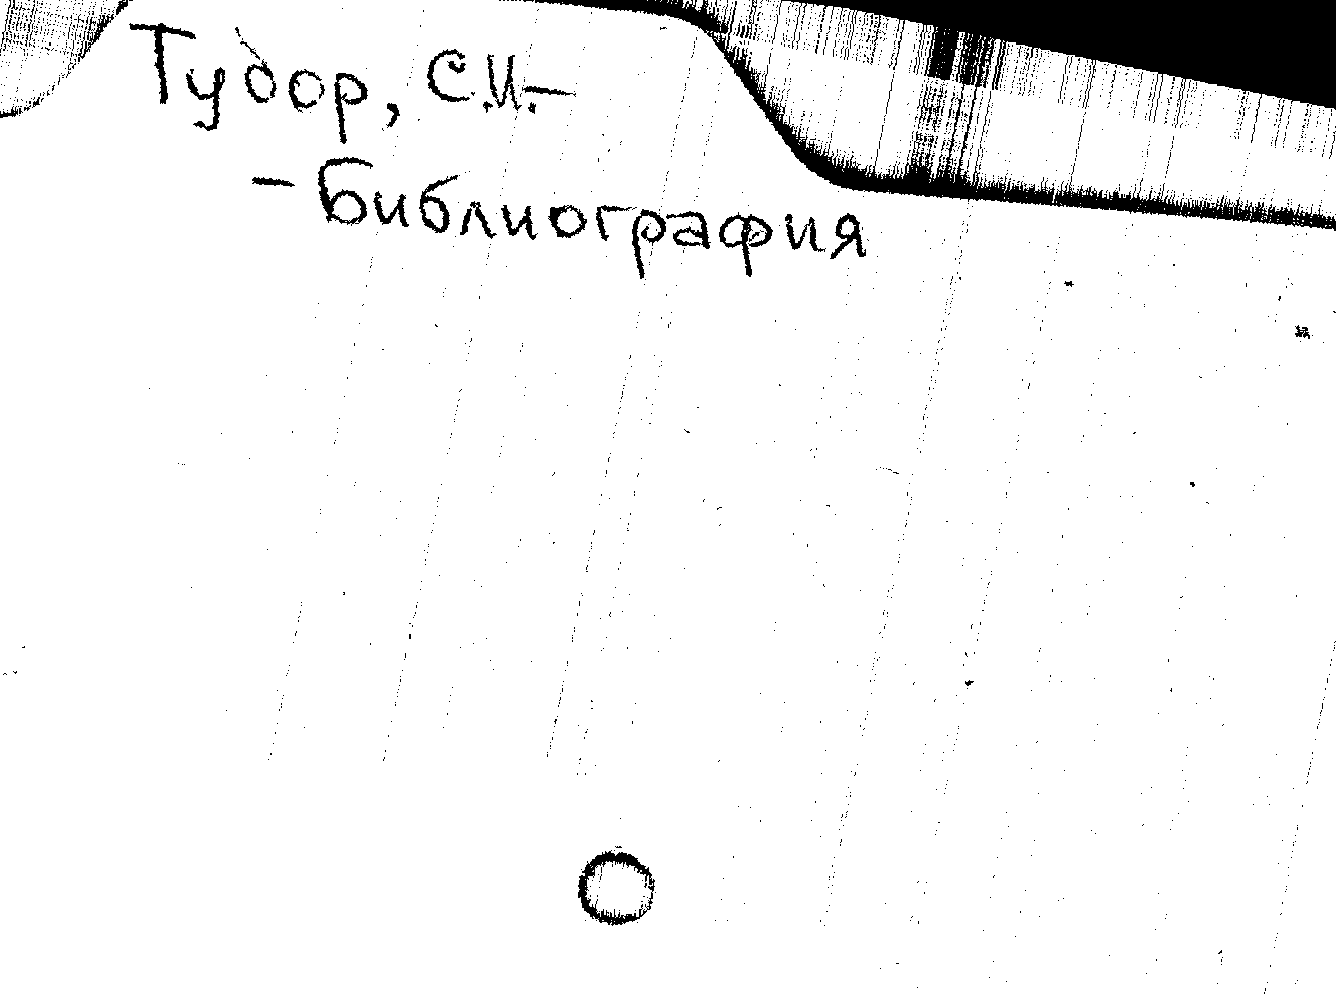 Тудор, С.И.-
- Библиография